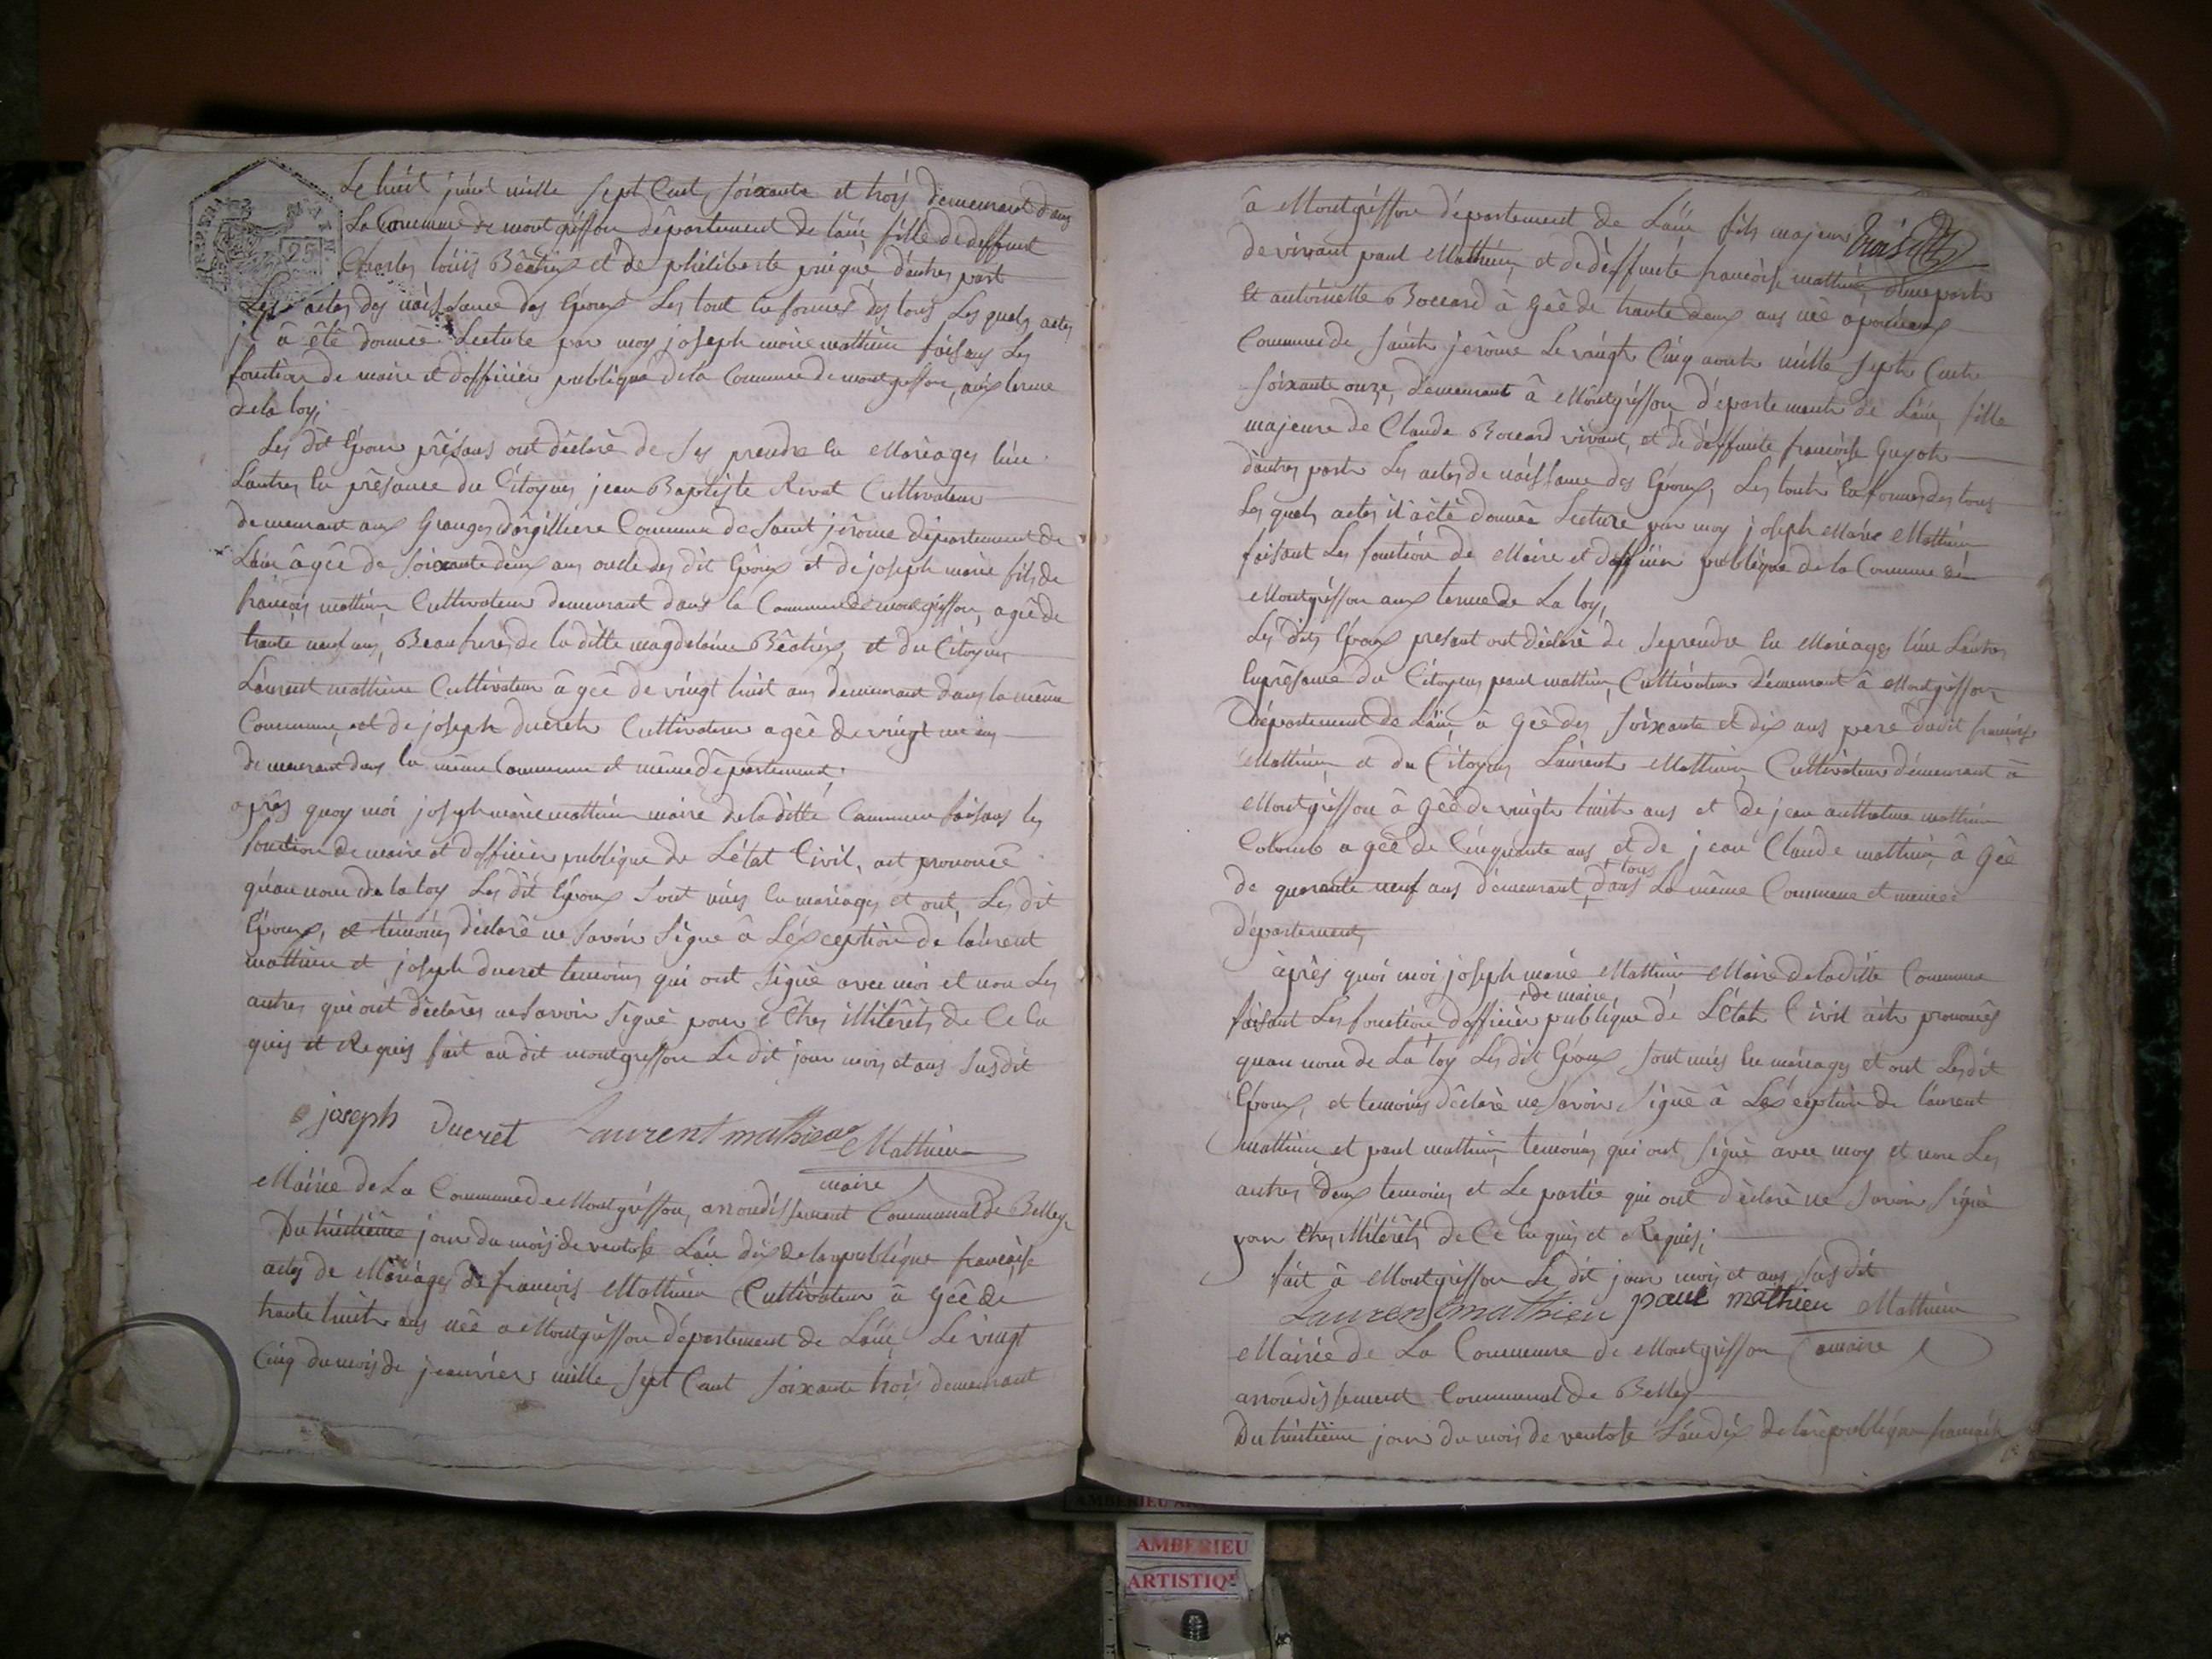 Le huit juint mille sept Cent soixante et trois demeurant dans
La Commune de montgriffon département de láin fille de deffunt
Charles loüis Béatrix et de philiberte d'autres part
Les actes des naissance des Epoux Les tout en formes des lois Les quels actes
il â êté donnée Lecture par moy joseph marie mathieu faisans Les
fonction de maire et d'officier publique de la Commune de montgriffon, aux terme
de la loy,
Les dit Epoux présans ont déclaré de Ses prendre En Mariages l'un
L'autres En présance du Citoyens jean Baptiste Rivat Cultivateur
demeurant aux Granges d'argilliere Commune de Saint jérome département de
Láin âgée de soixante deux ans oncle des dit Epoux et de joseph marie fils de
françois mathieu Cultivateur demeurant dans la Commune de montgriffon, agée de
trante neuf ans, Beaufrere de la ditte magdelaine Béatrix, et du Citoyens
Laurent mathieu Cultivateur âgée de vingt huit ans demeurant dans la même
Commune, et de joseph ducret Cultivateur agée de vingt un ans
demeurant dans la même Commune et même département,
après quoy moi joseph marie mathieu maire de la ditte Commune faisans les
fonction de maire et d'officier publique de L'état Civil, ait prononcé
qu'au nom de la loy Les dit Epoux Sont unis En mariages et ont Les dit
Epoux, et témoins déclaré ne savoir Signé â L'éxception de láurent
mathieu et joseph ducret temoins qui ont Signé avec moi et non Les
autres qui ont déclarés ne savoir Signé pour êtres illitérêts de Ce En
quis et Requis fait au dit montgriffon Le dit jour mois et ans susdit
joseph Ducret Laurent mathieu Mathieu
maire
Mairie de La Commune de Montgriffon, arrondissement Communal de Belley
Du huitième jour du mois de ventose L'an dix de la republique française
actes de Mariages de françois Mathieu Cultivateur â Gée de
trante huit ans née a Montgriffon département de Láin Le vingt
Cinq du mois de jeanvier mille sept Cent soixante trois demeurant
â Montgriffon département de Láin fils majeur
de vivant paul Mathieu et de déffunte françoise mathieu d'une part
Et antoinette Boccard â Gée de trante deux ans née a
Commune de Saint jerôme Le vaingt Cinq aout mille sept Cent
soixante onze, demeurant â Montgriffon département de Láin fille
majeure de Claude Boccard vivant, et de déffunte françoise Guyot
d'autres part Les actes de naissance des Epoux, Les tout En formes des lois
Les quels actes il a été donnée Lecture par moy joseph Marie Mathieu
faisant Les fonction de Maire et d'officier publique de la Commune de
Montgriffon aux terme de La loy,
Les dits Epoux presant ont déclaré de Se prendre En Mariages l'un L'autres
En présance du Citoyens paul mathieu, Cultivateur demeurant â Montgriffon
Département de Láin â Gée des soixante et dix ans pere du dit françois
Mathieu et du Citoyens Laurent Mathieu Cultivateur demeurant â
Montgriffon â Gée de vingt huit ans et de jean anthelme mathieu
Colomb a gée de Cinquante ans et de jean Claude mathieu â Gée
tous
de quarante neuf ans demeurant, dans La même Commune et même
département,
après quoi moi joseph marie Mathieu Maire de la ditte Commune
, de maire
faisant Les fonction d'officier publique de L'état Civil ait prononcés
qu'au nom de La loy Les dit Epoux Sont unis En mariages et ont Les dit
Epoux, et temoins déclaré ne savoir Signé â L'éxception de láurent
mathieu et paul mathieu temoins qui ont Signé avec moy et non Les
autres deux temoins et Le partie qui ont déclaré ne Savoir Signé
pour êtres illitérêts de Ce En quis et Requis,
fait â Montgriffon Le dit jour mois et ans susdit
Laurent mathieu paul mathieu Mathieu
Mairie de La Commune de Montgriffon maire
arrondissement Communal de Belley
Du huitième jour du mois de ventose L'an dix de la république française
AMBERIEU
AMBERIEU
ARTISTIQ